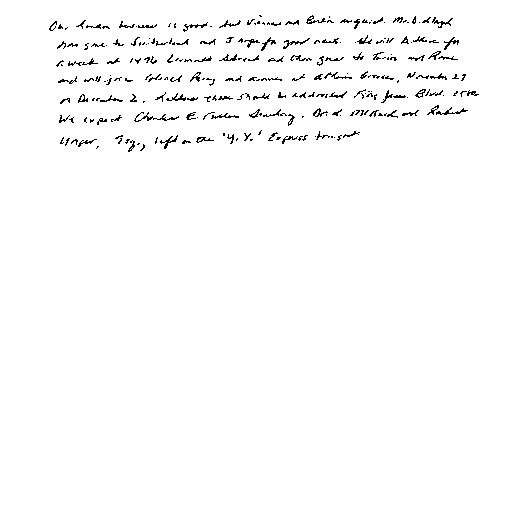 Our London business is good, but Vienna and Berlin are quiet. Mr. D. Lloyd
has gone to Switzerland and I hope for good news. He will be there for
a week at 1496 Zermott Street and then goes to Turin and Rome
and will join Colonel Parry and arrive at Athens, Greece, November 27
or December 2. Letters there should be addressed King James Blvd. 3580
We expect Charles E. Fuller Tuesday. Dr. L. McQuaid and Robert
Unger, Esq., left on the "Y.X." Express tonight.